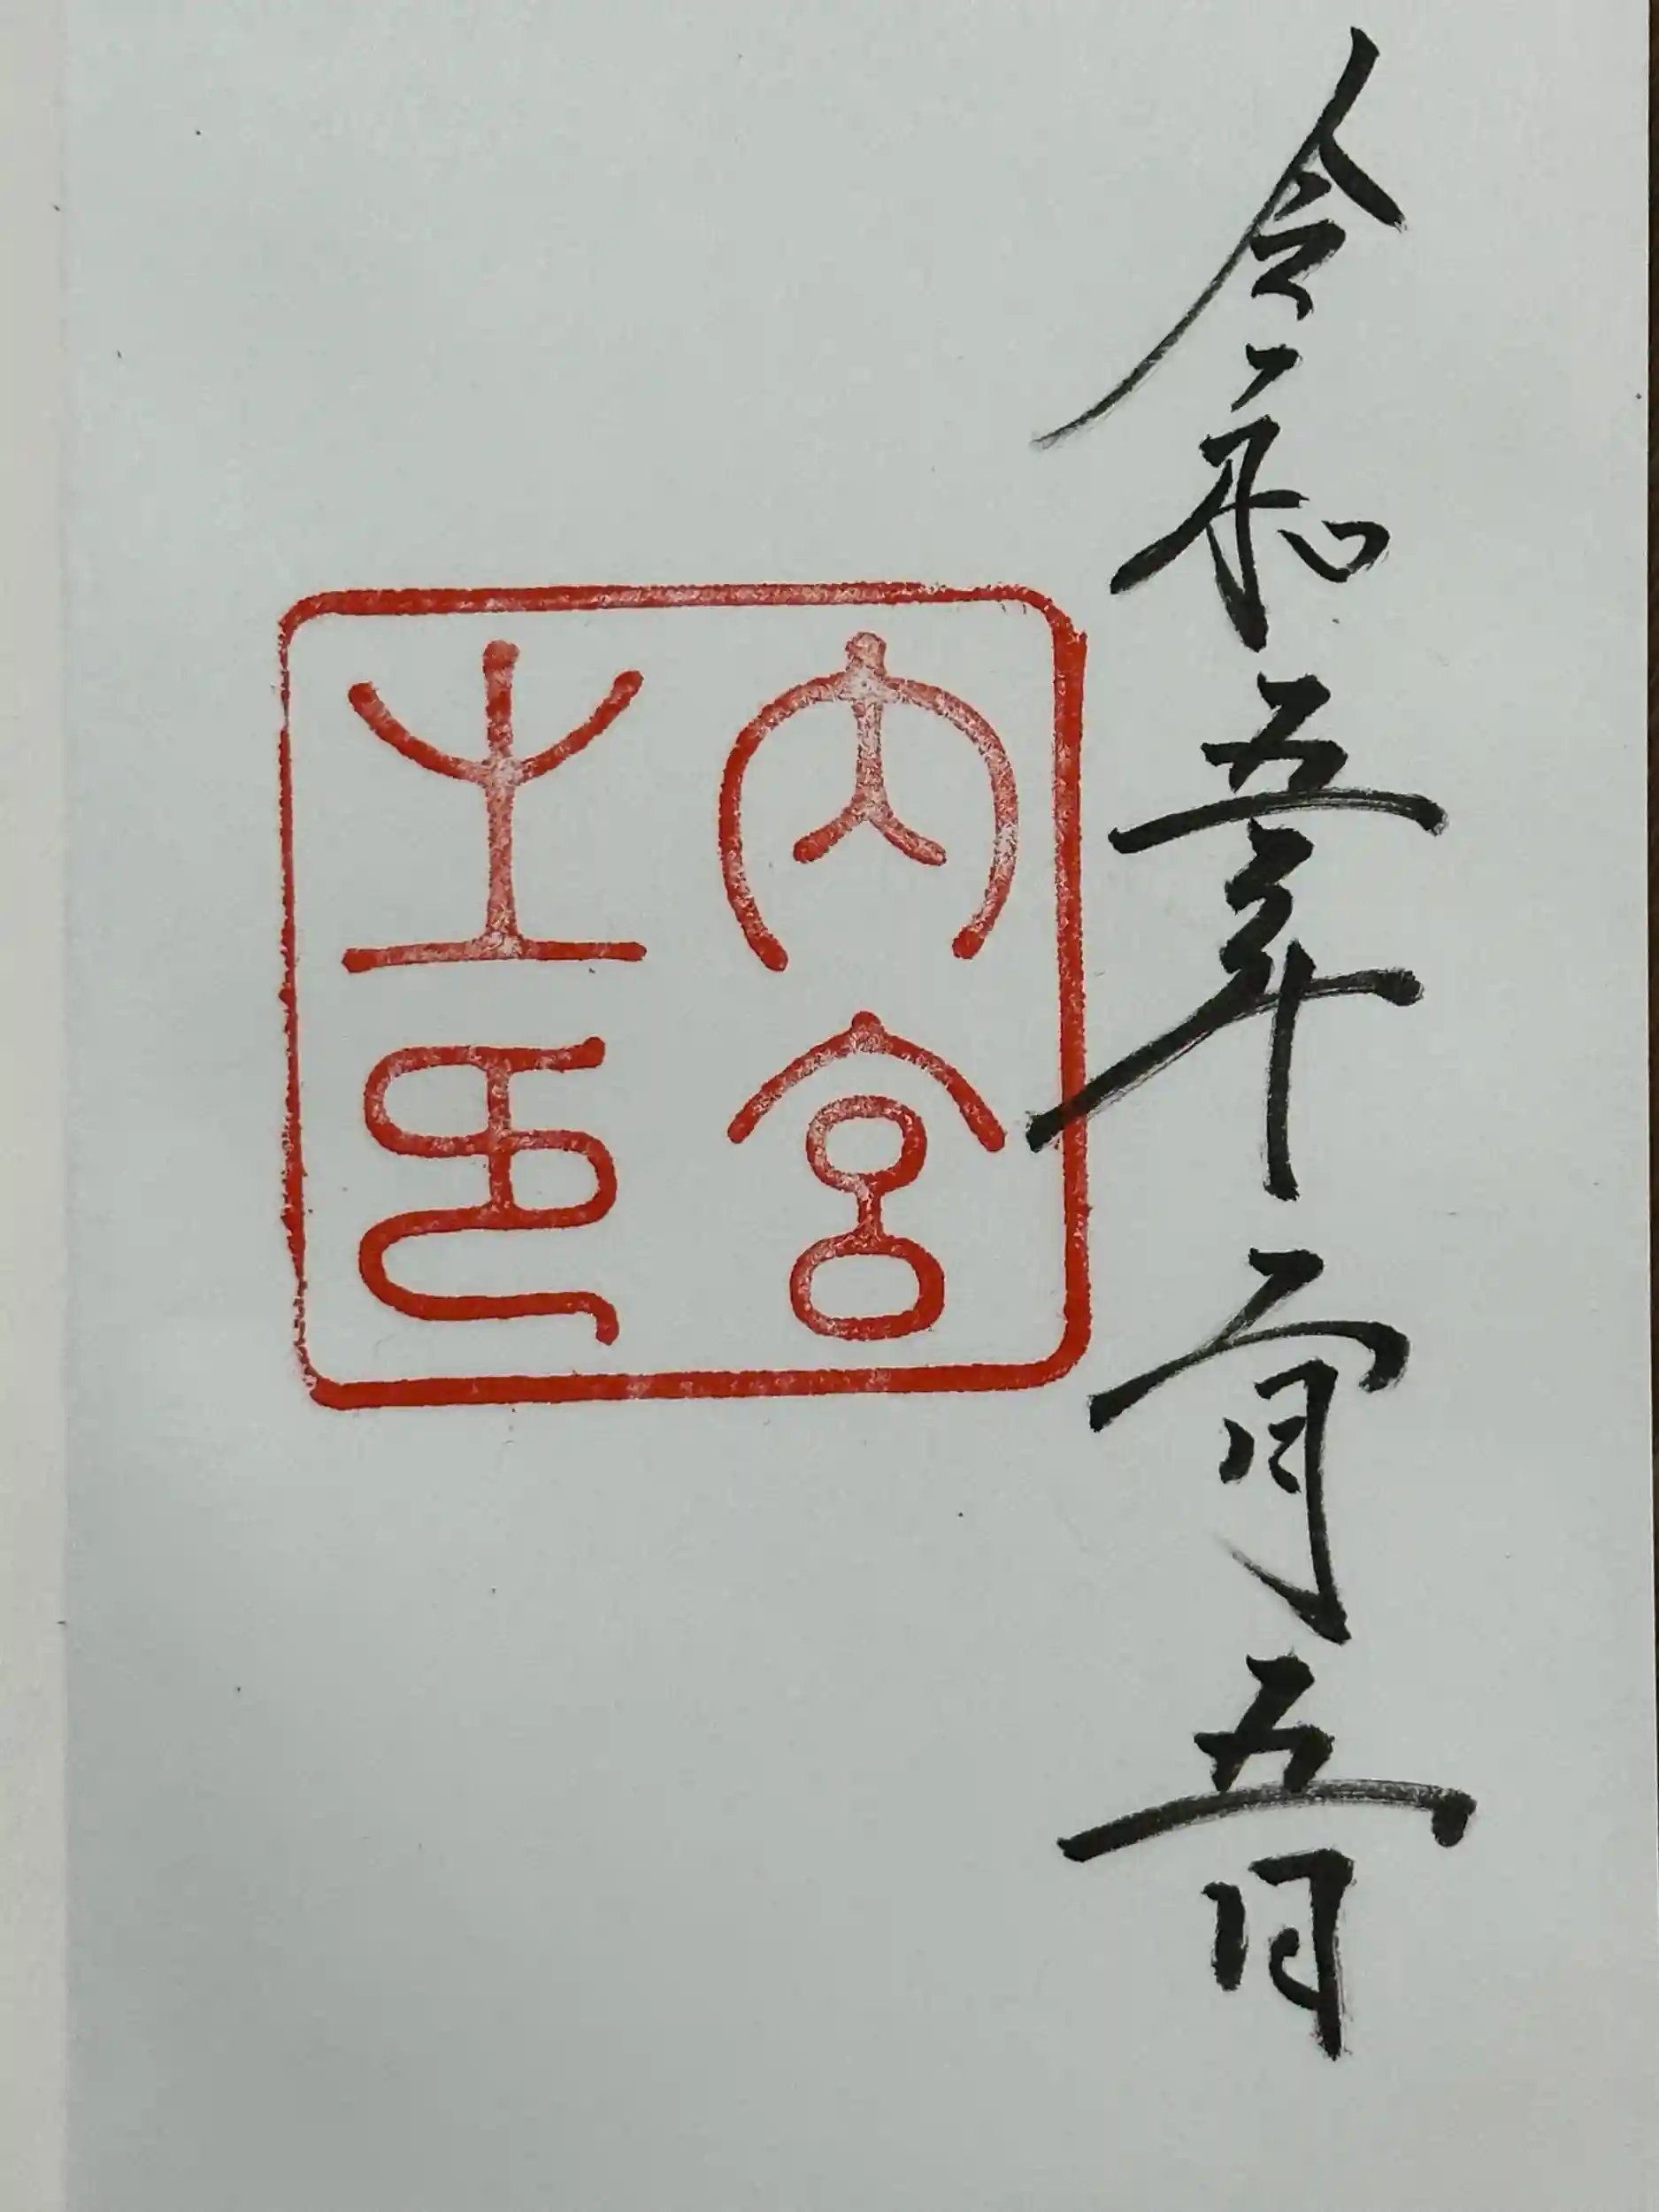 令和五年二月五日
内宮
之印